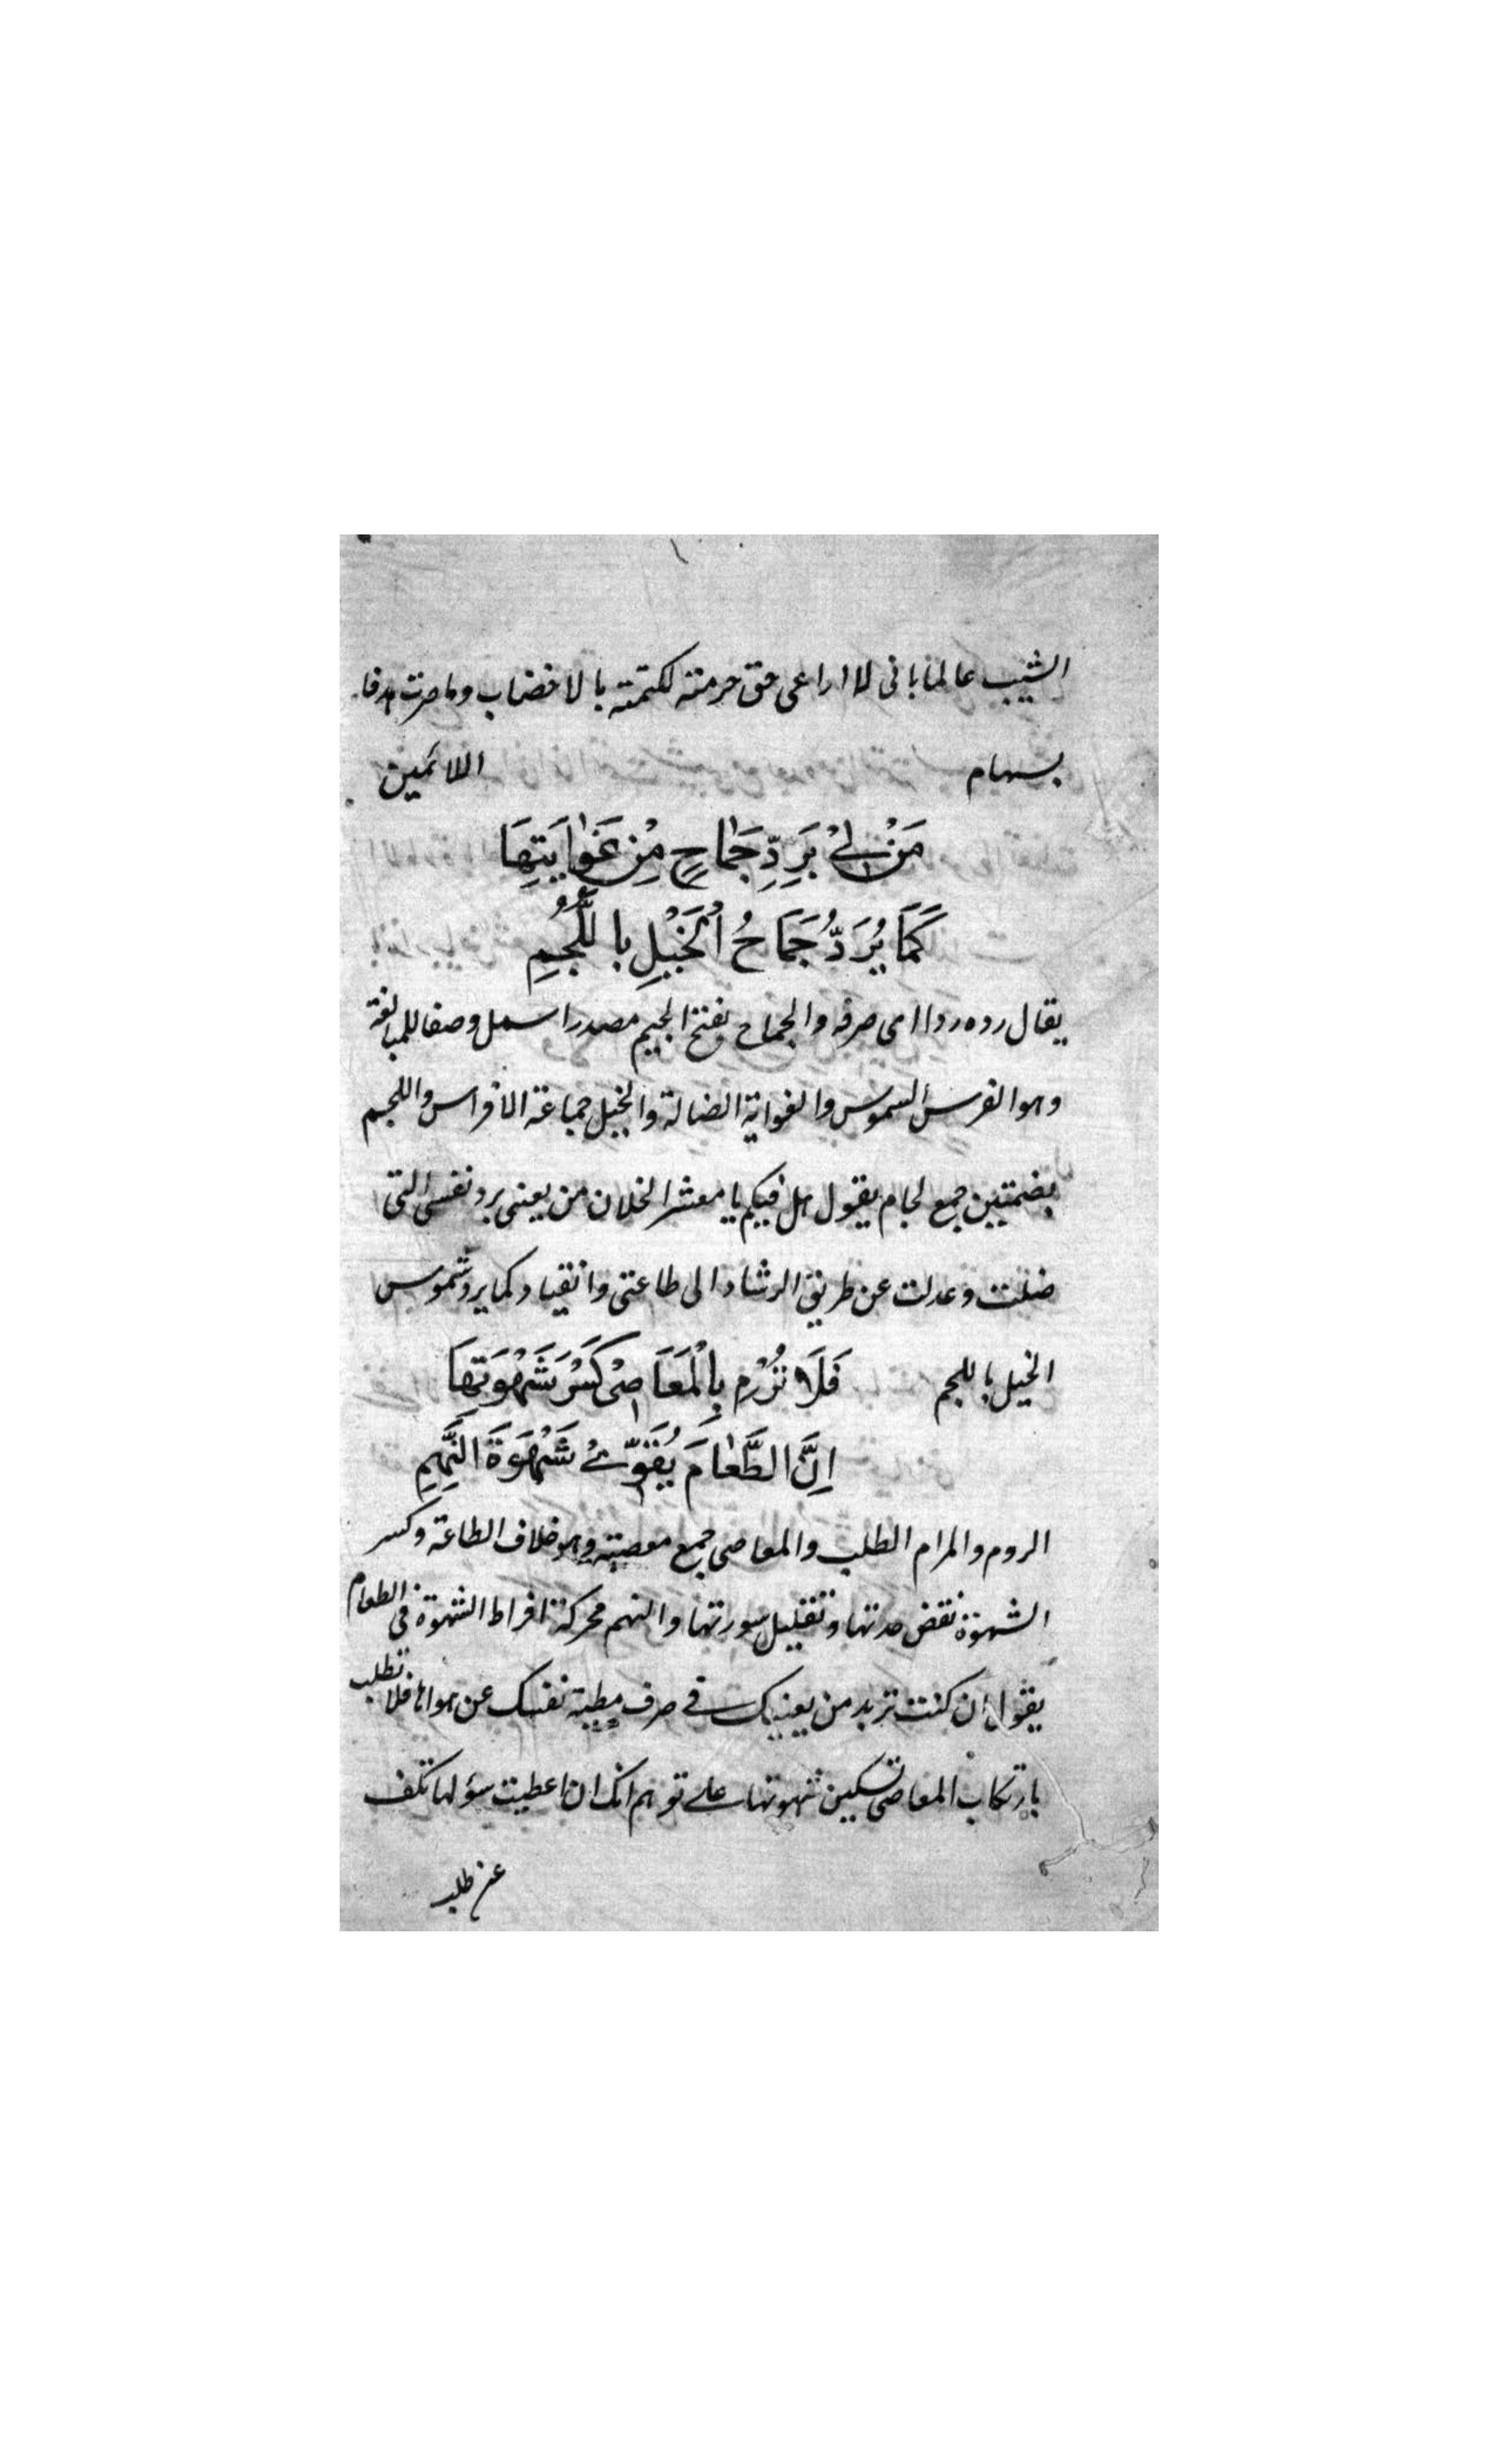 الشيب عالما بانى لا اراعى حق حرمته لكتمته بالاخضاب وما صرت هدفا
بسهام اللائمين
مَنْ لِىْ بَرَدِّ جَمٰاحٍ مِنْ غَوٰايَتِهَا
كَمَا يُرَدُّ جَمَاحُ اْلخَيْلِ بِا للُّجُمِ
يقال رده ردا اى صرفه والجماح بفتح الجيم مصدر استعمل وصفا للمبالغة
وهو الفرس الشموس والغواية الضالة والخيل جماعة الافراس واللجم
بضمتين جمع لجام يقول هل فيكم يا معشر الخلان من يعنى برد نفسى التى
ضلت وعدلت عن طريق الرشاد الى طاعتى وانقياد كما يرد شموس
الخيل باللجم فَلَا تَرُمْ بِالْمَعَاصِىْ كَسْرَ شَهْوَتِهَا
اِنَّ الطَّعٰامَ يُقَوِّىْ شَهْوَةَ النَّهِمِ
الروم والمرام الطلب والمعاصى جمع معصية وهو خلاف الطاعة وكسر
الشهوة نقض حدتها وتقليل سورتها والنهم محركة افراط الشهوة فى الطعام
يقول ان كنت تريد من يعينك فى صرف مطية نفسك عن هواها فلا تطلب
بارتكاب المعاصى تسكين شهوتها على توهم انك ان اعطيت سؤلها تكف
عن طلب